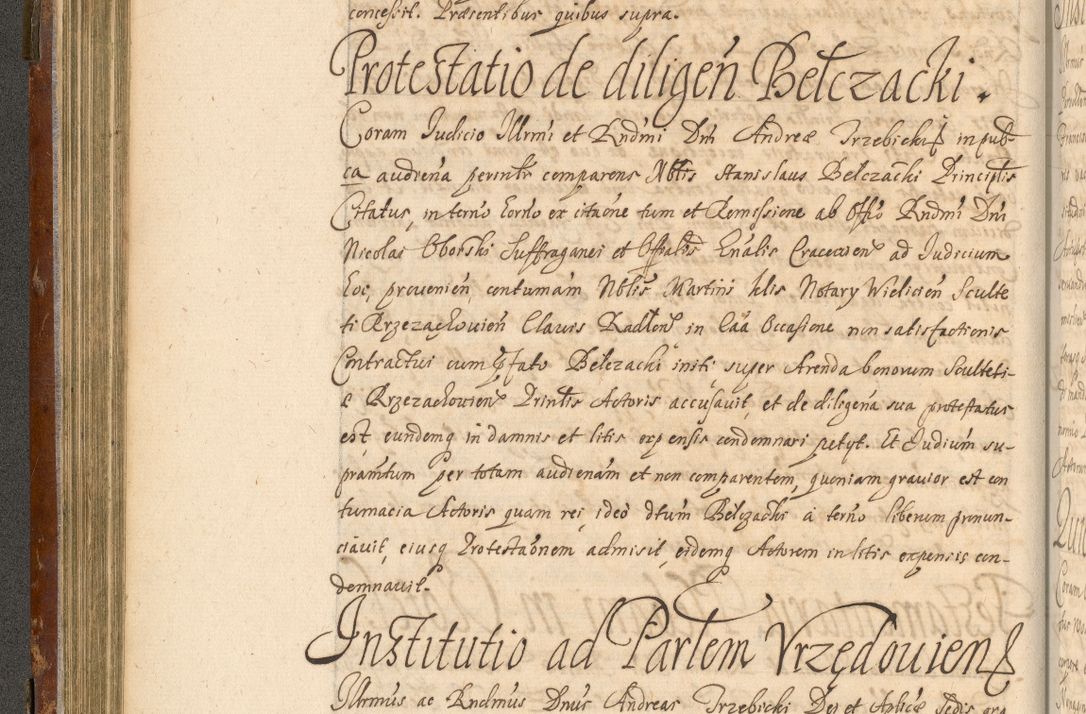 concessit. Præsentibus quibus supra.
Protestatio de diligeń Bełczacki.
Coram Judicio Illrmi et Rndmi Dni Andreæ Trzebicki in pub-
ca audiena perintr comparens Nbtis Stanislaus Bełczacki Principlis
Citatus, in terno hodno ex citaone tum et Remissione ab Offio Rndmi Dni
Nicolai Oborski Suffraganei et Offialis Gnalis Cracovien ad Judicium
hoc, provenien, contumam Nbtis Martini Notary Wielicien Sculte
ti Krzezachovien Clavis Radłov in Caa Occasione non satisfactionis
Contractui cum pfato Bełczacki initi super Arenda bonorum Sculteti-
æ Krzezachovien Printis Actoris accusavit, et de diligena sua protestatus
est, eundemq in damnis et litis expensis condemnari petyt. Et Judium su-
pramtum per totam audienam et non comparentem, quoniam gravior est con
tumacia Actoris quam rei, ideo dtum Bełczacki a terno liberum pronun-
ciavit, eiusq Protestaonem admisit, eidemq Actorem in litis expensis con-
demnavit.
Institutio ad Partem Vrzędovien
Illrmus ac Rndmus Dnus Andreas Trzebicki Dei et Aplicæ Sedis gra